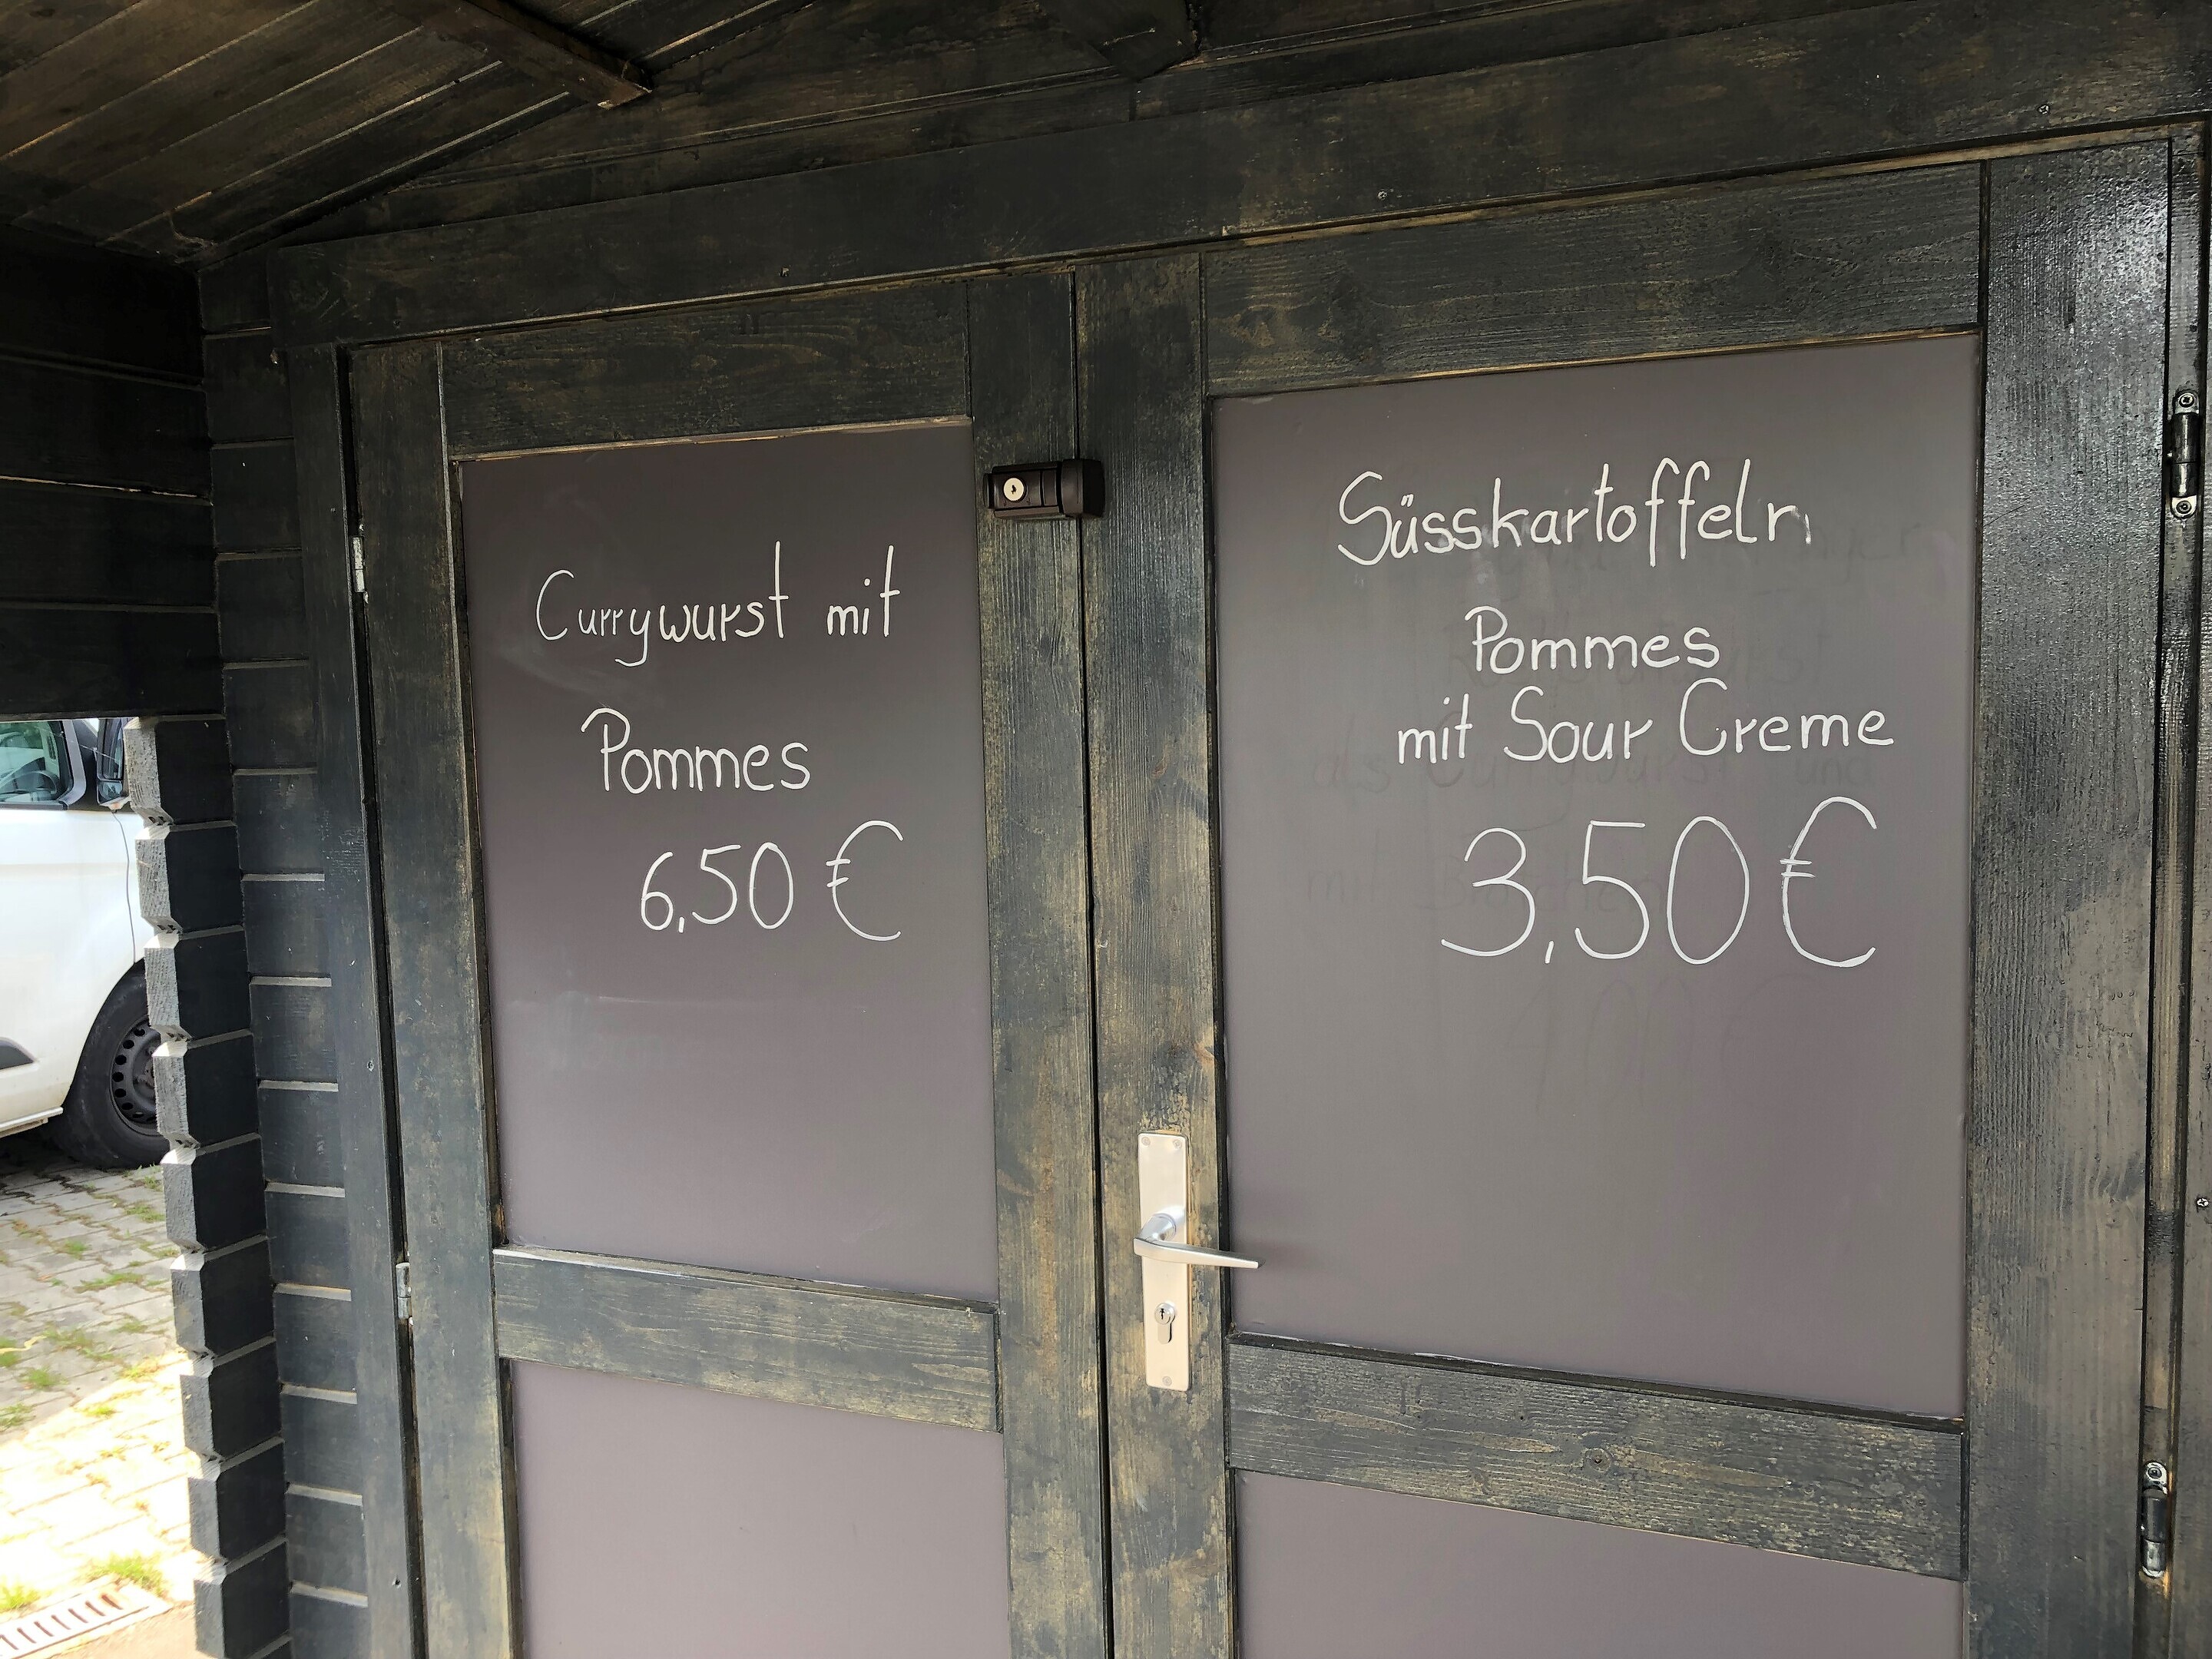 Currywurst mit
Pommes
6,50 €
Süsskartoffeln
Pommes
mit Sour Creme
3,50 €